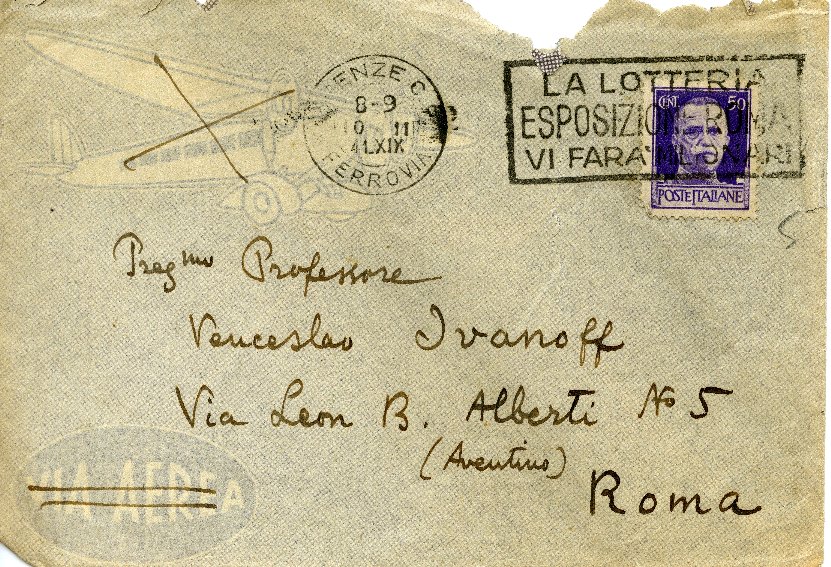 FIRENZE C.P.
8-9
10 II
41.XIX
FERROVIA
LA LOTTERIA
ESPOSIZIONE ROMA
VI FARA MILIONARI
CENT 50
POSTE ITALIANE
5
Preg mo Professore
Venceslao Ivanoff
Via Leon B. Alberti No 5
(Aventino)
Roma
VIA AEREA